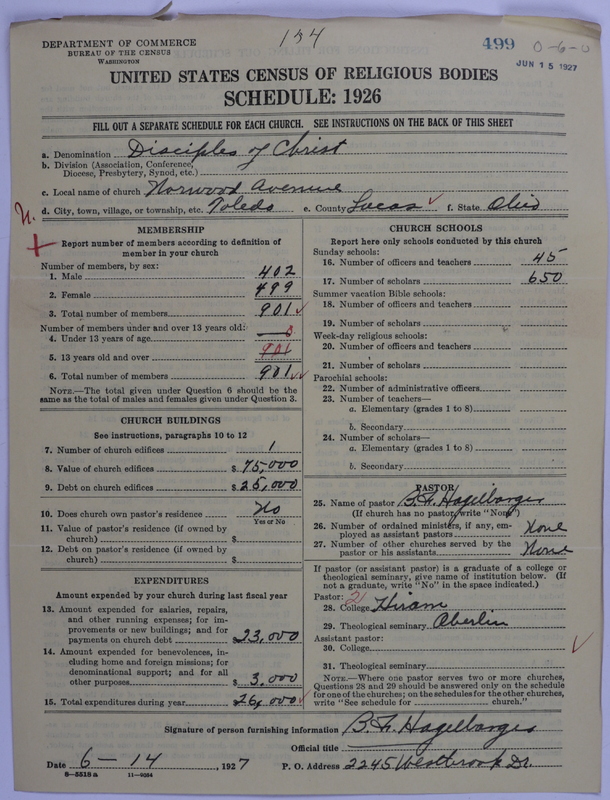 134
499 0-6-0
JUN 15 1927
DEPARTMENT OF COMMERCE
BUREAU OF THE CENSUS
WASHINGTON
UNITED STATES CENSUS OF RELIGIOUS BODIES
SCHEDULE: 1926
FILL OUT A SEPARATE SCHEDULE FOR EACH CHURCH. SEE INSTRUCTIONS ON THE BACK OF THIS SHEET
a. Denomination Disciples of Christ
b. Division (Association, Conference, Diocese, Presbytery, Synod, etc.)
c. Local name of church Norwood Avenue
d. City, town, village, or township, etc. Toledo e. County Lucas f. State Ohio
MEMBERSHIP
Report number of members according to definition of
member in your church
Number of members, by sex:
1. Male 402
2. Female 499
3. Total number of members 901
Number of members under and over 13 years old:
4. Under 13 years of age 0
5. 13 years old and over 901
6. Total number of members 901
NOTE.—The total given under Question 6 should be the
same as the total of males and females given under Question 3.
CHURCH BUILDINGS
See instructions, paragraphs 10 to 12
7. Number of church edifices 1
8. Value of church edifices $75,000
9. Debt on church edifices $25,000
10. Does church own pastor's residence No
Yes or No
11. Value of pastor's residence (if owned by
church) $
12. Debt on pastor's residence (if owned by
church) $
EXPENDITURES
Amount expended by your church during last fiscal year
13. Amount expended for salaries, repairs,
and other running expenses; for im-
provements or new buildings; and for
payments on church debt $23,000
14. Amount expended for benevolences, in-
cluding home and foreign missions; for
denominational support; and for all
other purposes $3,000
15. Total expenditures during year $26,000
CHURCH SCHOOLS
Report here only schools conducted by this church
Sunday schools:
16. Number of officers and teachers 45
17. Number of scholars 650
Summer vacation Bible schools:
18. Number of officers and teachers
19. Number of scholars
Week-day religious schools:
20. Number of officers and teachers
21. Number of scholars
Parochial schools:
22. Number of administrative officers
23. Number of teachers—
a. Elementary (grades 1 to 8)
b. Secondary
24. Number of scholars—
a. Elementary (grades 1 to 8)
b. Secondary
PASTOR
25. Name of pastor B. F. Hagelbarger
(If church has no pastor, write "None")
26. Number of ordained ministers, if any, em-
ployed as assistant pastors None
27. Number of other churches served by the
pastor or his assistants None
If pastor (or assistant pastor) is a graduate of a college or
theological seminary, give name of institution below. (If
not a graduate, write "No" in the space indicated.)
Pastor: 2
28. College Hiram
29. Theological seminary Oberlin
Assistant pastor:
30. College
31. Theological seminary
NOTE.—Where one pastor serves two or more churches,
Questions 28 and 29 should be answered only on the schedule
for one of the churches; on the schedules for the other churches,
write "See schedule for church."
Signature of person furnishing information B. F. Hagelbarger
Official title
Date 6-14, 1927 P. O. Address 2245 Westbrook Dr.
8-5518 a 11-9054